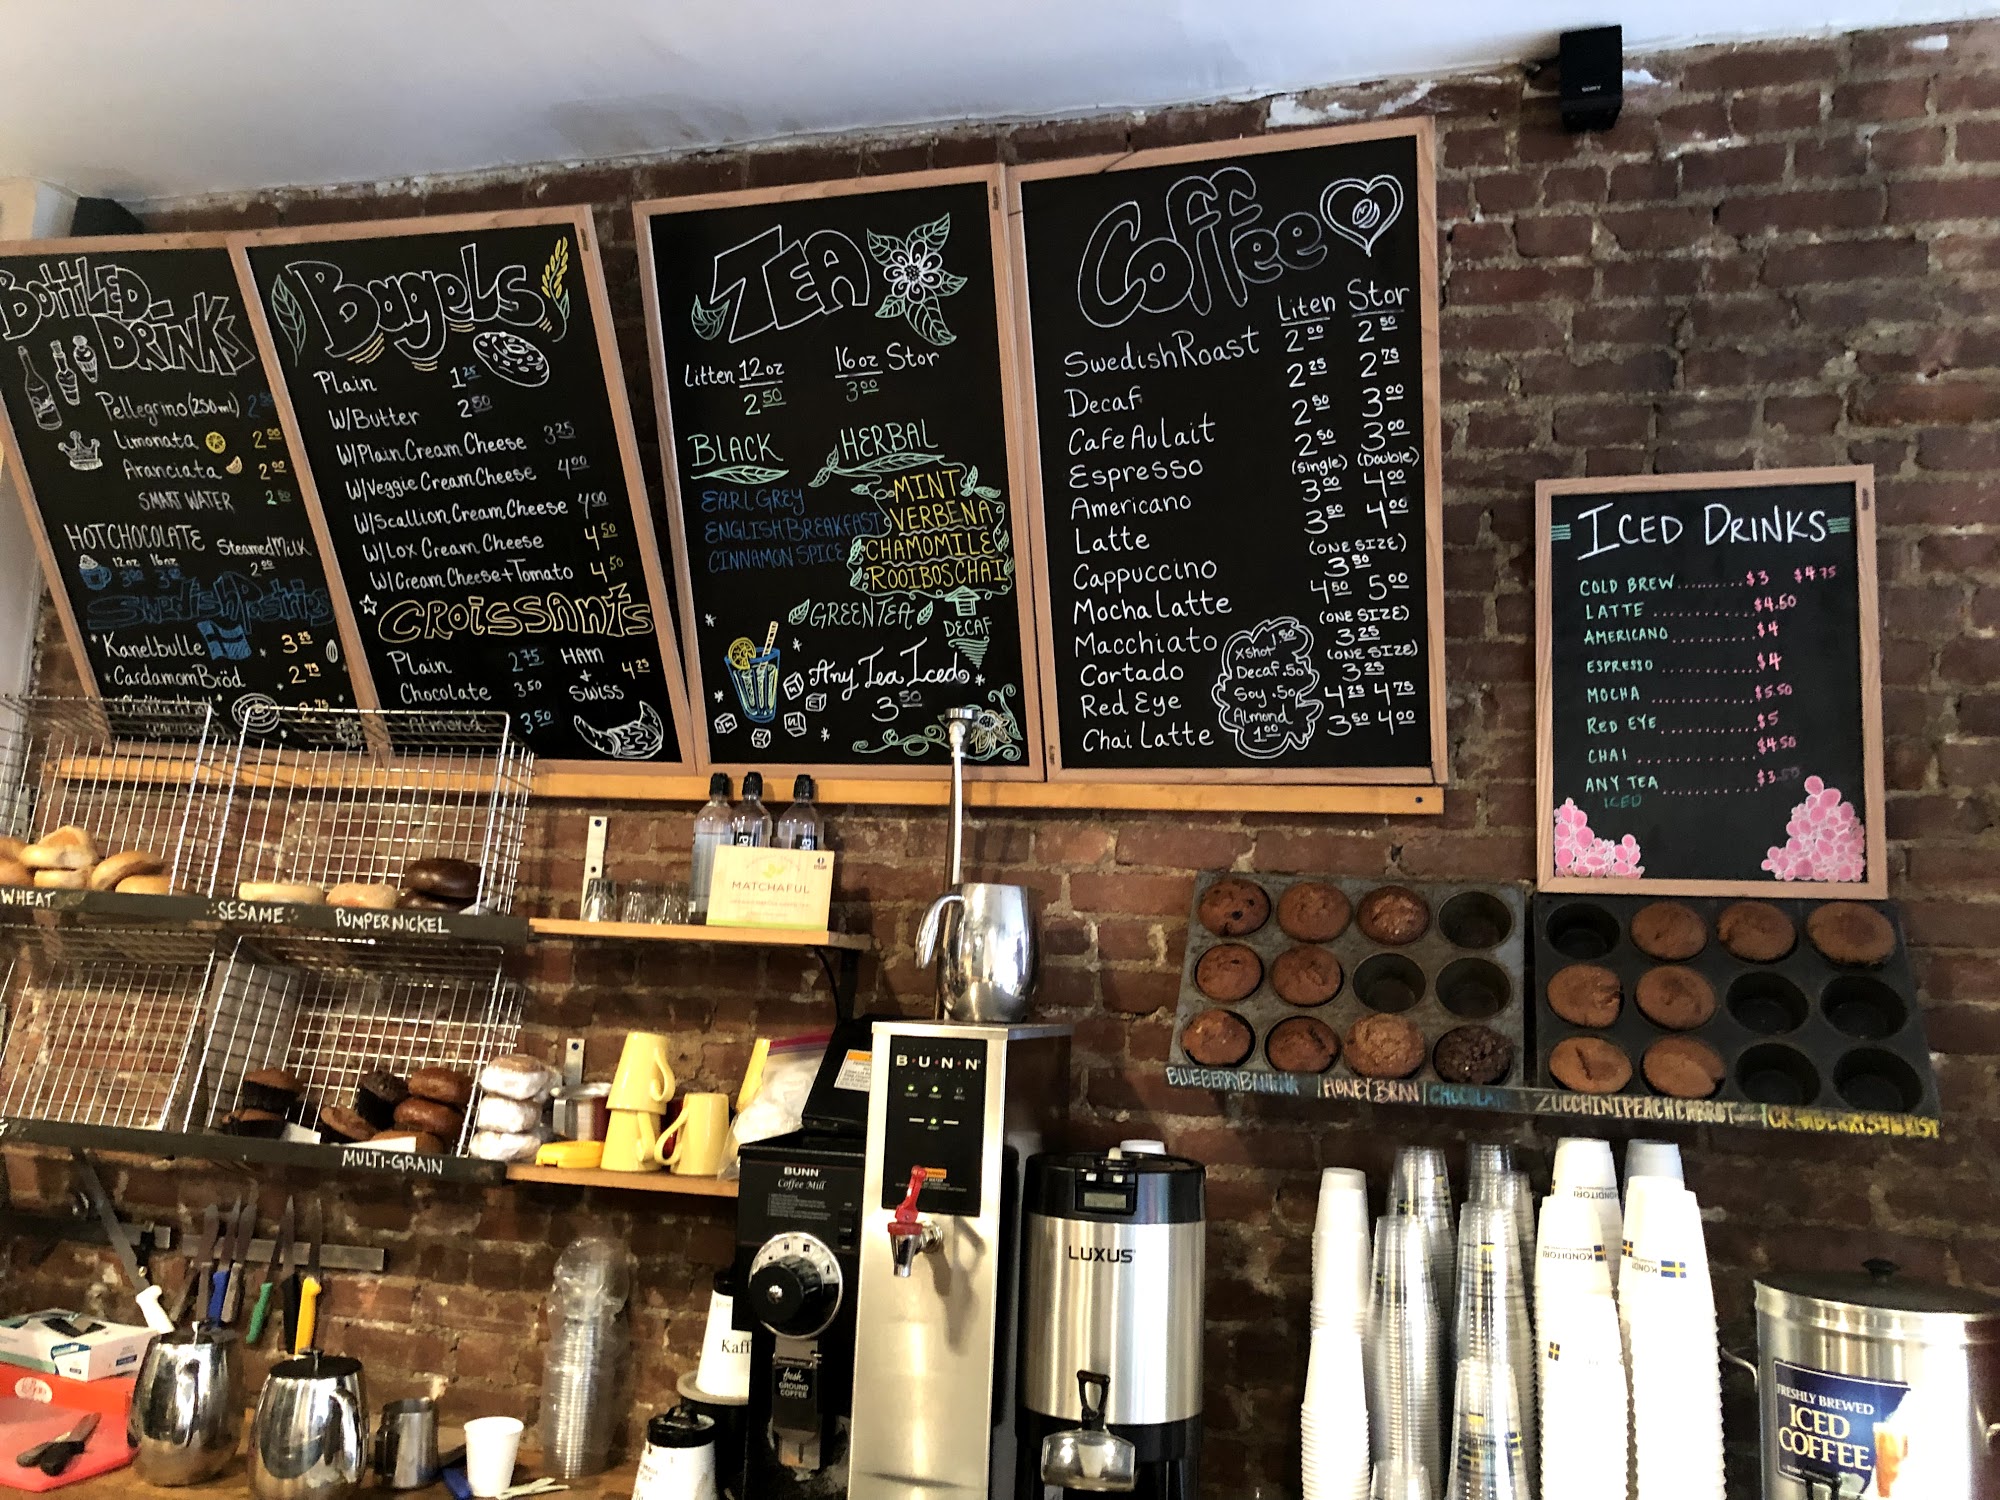 BOTTLED
DRINKS
Pellegrino (250ml) 2.50
Limonata 2.00
Aranciata 2.00
SMART WATER 2.50
HOT CHOCOLATE
12oz 16oz
Steamed Milk
2.00
Swedish Pastries
*Kanelbulle 3.25
*Cardamom Bröd 2.75
2.75
Bagels
Plain 1.25
W/Butter 2.50
W/Plain Cream Cheese 3.25
W/Veggie Cream Cheese 4.00
W/Scallion Cream Cheese 4.00
W/Lox Cream Cheese 4.50
W/Cream Cheese + Tomato 4.50
CROISSANTS
Plain 2.75
Chocolate 3.50
Almond 3.50
HAM
+
SWISS
4.25
TEA
Litten 12oz 16oz Stor
2.50 3.00
BLACK
EARL GREY
ENGLISH BREAKFAST
CINNAMON SPICE
HERBAL
MINT
VERBENA
CHAMOMILE
ROOIBOS CHAI
GREEN TEA
DECAF
Any Tea Iced
3.50
Coffee
Liten Stor
Swedish Roast 2.00 2.50
Decaf 2.25 2.75
Cafe Au Lait 2.50 3.00
Espresso 2.50 3.00
(Single) (Double)
Americano 3.00 4.00
Latte 3.50 4.00
(ONE SIZE)
Cappuccino 3.50
Mocha Latte 4.50 5.00
(ONE SIZE)
Macchiato 3.25
(ONE SIZE)
Cortado 3.25
Red Eye 4.25 4.75
Chai Latte 3.50 4.00
X Shot 1.50
Decaf .50
Soy .50
Almond
1.00
ICED DRINKS
COLD BREW.........$3 $4.75
LATTE ..........$4.50
AMERICANO.........$4
ESPRESSO .........$4
MOCHA ..........$5.50
RED EYE ..........$5
CHAI ............$4.50
ANY TEA ..........$3.50
ICED
SONY
WHEAT
SESAME
PUMPERNICKEL
MULTI-GRAIN
MATCHAFUL
BLUEBERRY BANANA / HONEY BRAN / CHOCOLATE
ZUCCHINI PEACH CARROT
BUNN
BUNN
Coffee Mill
fresh
GROUND
COFFEE
LUXUS
Kaff
KONDITORI
KONDITORI
KONDI
FRESHLY BREWED
ICED
COFFEE